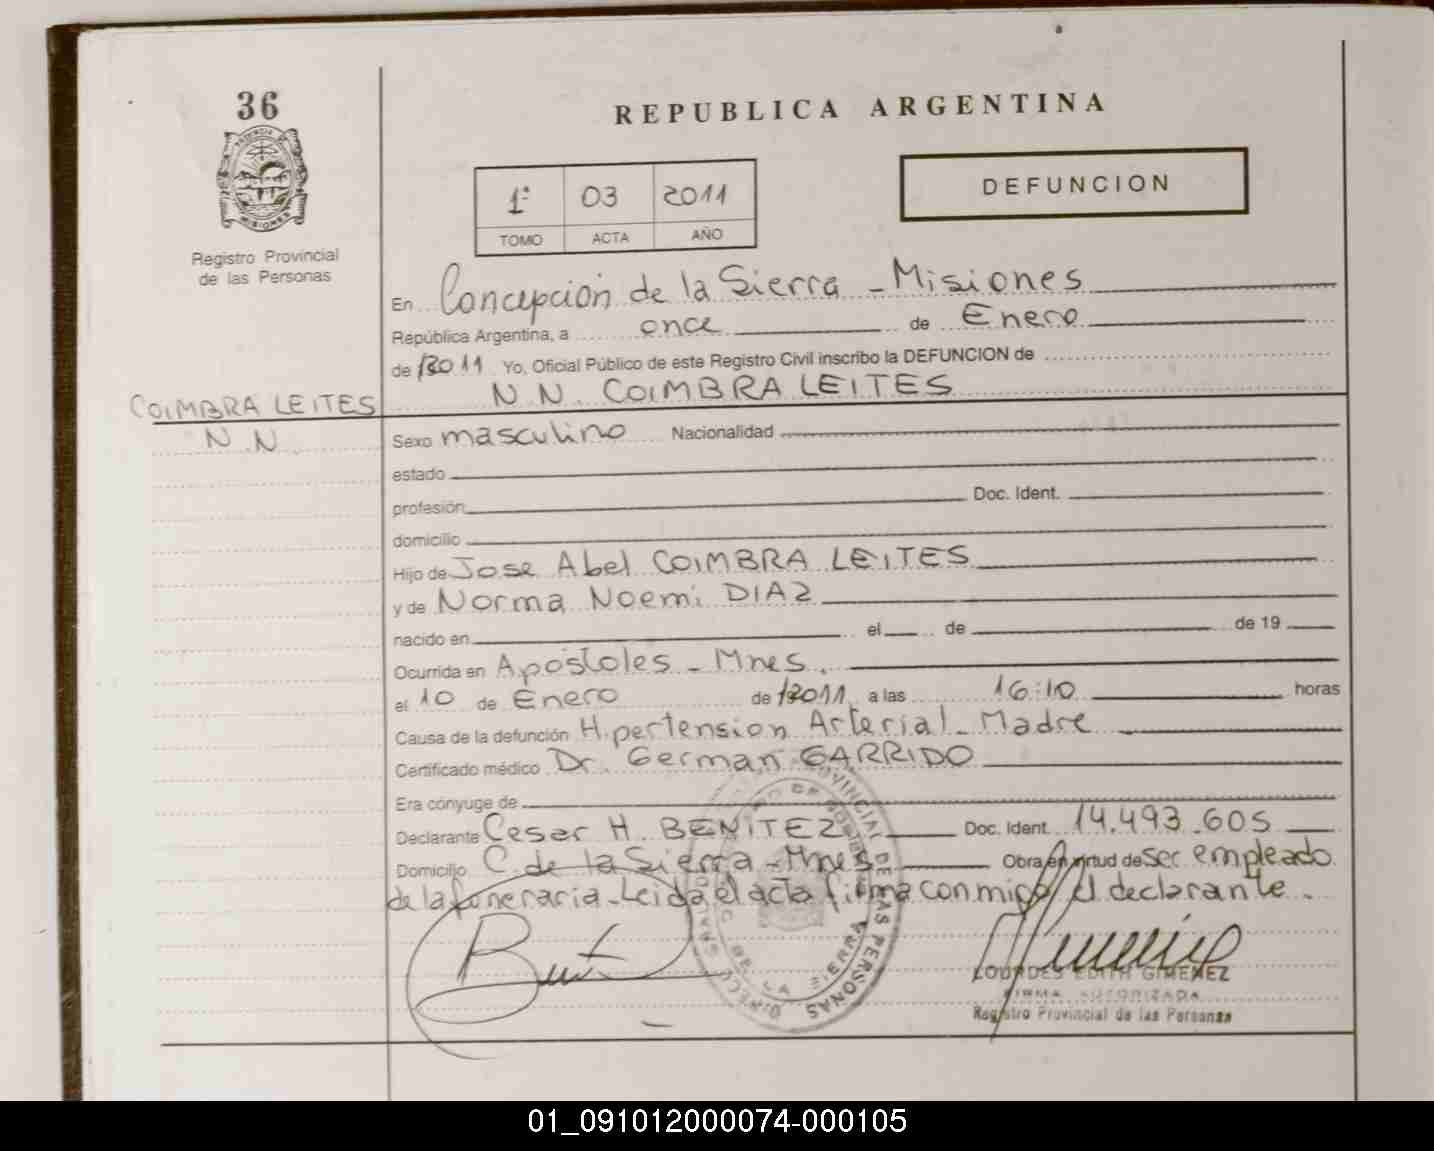 36
REPUBLICA ARGENTINA
DEFUNCION
1ª 03 2011
TOMO ACTA AÑO
Registro Provincial
de las Personas
En Concepción de la Sierra - Misiones
República Argentina, a once de Enero
de 2011 Yo, Oficial Público de este Registro Civil inscribo la DEFUNCION de
N.N. COIMBRA LEITES
COIMBRA LEITES
N.N.
Sexo masculino Nacionalidad
estado
profesión Doc. Ident.
domicilio
Hijo de Jose Abel COIMBRA LEITES
y de Norma Noemi DIAZ
nacido en el de de 19
Ocurrida en Apóstoles - Mnes.
el 10 de Enero de 2011 a las 16:10 horas
Causa de la defunción Hipertension Arterial - Madre
Certificado médico Dr. German GARRIDO
Era cónyuge de
Declarante Cesar H. BENITEZ Doc. Ident. 14.493.605
Domicilio C. de la Sierra - Mnes Obra en virtud de ser empleado
de la funeraria - Leida el acta firma conmigo el declarante.
LOURDES EDITH GIMENEZ
FIRMA AUTORIZADA
Registro Provincial de las Personas
01_091012000074-000105